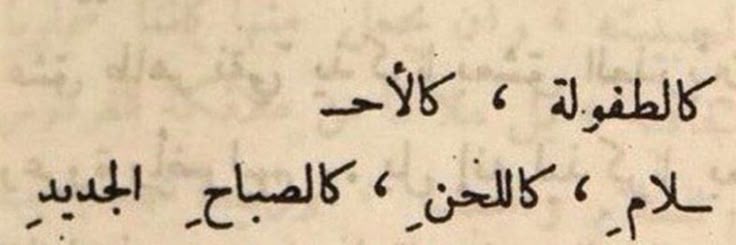 كالطفولة ، كالأحـ
ـلامِ ، كاللحنِ ، كالصباحِ الجديدِ